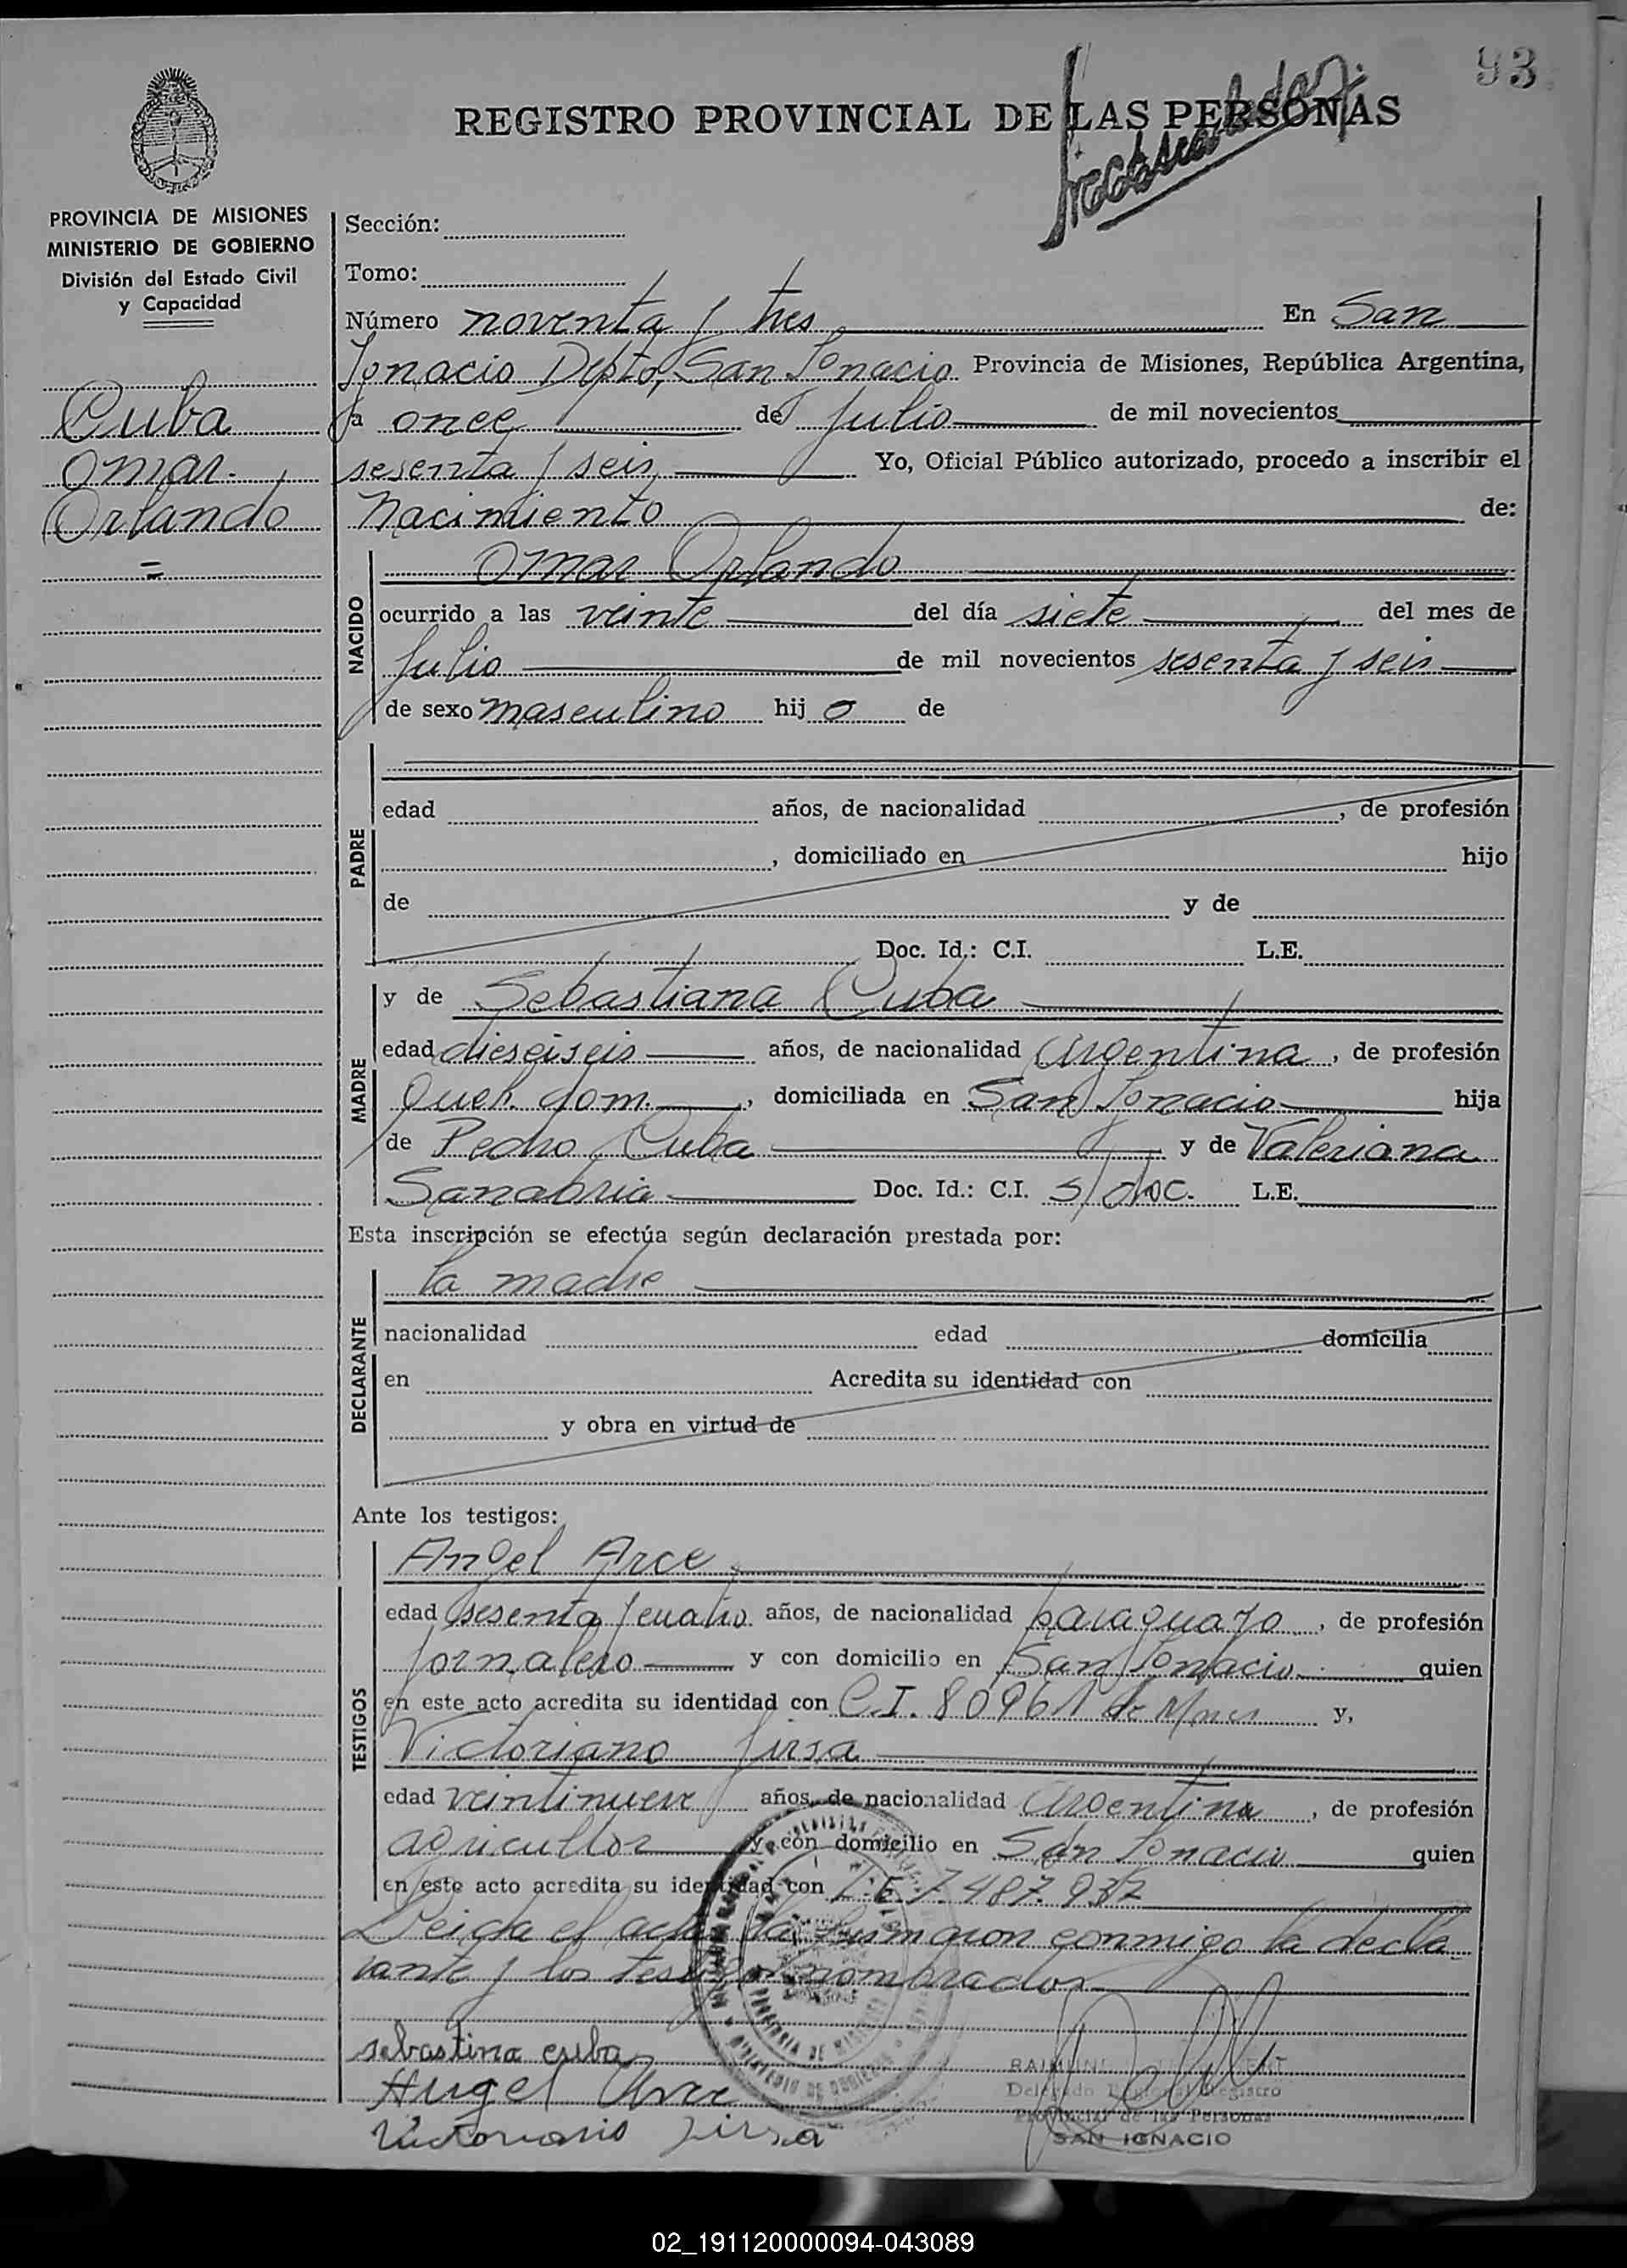 93
REGISTRO PROVINCIAL DE LAS PERSONAS
PROVINCIA DE MISIONES
MINISTERIO DE GOBIERNO
División del Estado Civil
y Capacidad
Cuba
Omar
Orlando
=
Sección:
Tomo:
Número noventa y tres En San
Ignacio Depto, San Ignacio Provincia de Misiones, República Argentina,
a once de julio de mil novecientos
sesenta y seis Yo, Oficial Público autorizado, procedo a inscribir el
Nacimiento de:
NACIDO
Omar Orlando
ocurrido a las veinte del día siete del mes de
julio de mil novecientos sesenta y seis
de sexo masculino hij o de
PADRE
edad años, de nacionalidad , de profesión
, domiciliado en hijo
de y de
Doc. Id.: C.I. L.E.
MADRE
y de Sebastiana Cuba
edad dieseiseis años, de nacionalidad Argentina, de profesión
Queh. dom. , domiciliada en San Ignacio hija
de Pedro Cuba y de Valeriana
Sanabria Doc. Id.: C.I. S/doc. L.E.
Esta inscripción se efectúa según declaración prestada por:
DECLARANTE
la madre
nacionalidad edad domicilia
en Acredita su identidad con
y obra en virtud de
Ante los testigos:
TESTIGOS
Angel Arce
edad sesenta y cuatro años, de nacionalidad paraguayo, de profesión
jornalero y con domicilio en San Ignacio quien
en este acto acredita su identidad con C.I. 80961 de Mnes y,
Victoriano Jirsa
edad veintinueve años, de nacionalidad Argentina, de profesión
agricultor y con domicilio en San Ignacio quien
en este acto acredita su identidad con L.E. 7.487.937
Leida el acta la firmaron conmigo la decla
rante y los testigos nombrados
sebastina cuba
Angel Arce
Victoriano Jirsa
Delegado Regional Registro
Provincial de las Personas
SAN IGNACIO
02_191120000094-043089